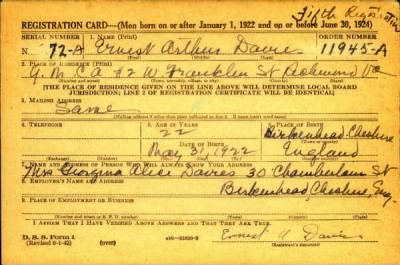 Fifth Registration
REGISTRATION CARD—(Men born on or after January 1, 1922 and on or before June 30, 1924)
SERIAL NUMBER 1. NAME (Print) ORDER NUMBER
N. 72-A Ernest Arthur Davies 11945-A
(First) (Middle) (Last)
2. PLACE OF RESIDENCE (Print)
Y.M.CA #2 W Franklin St Richmond Va
(Number and street) (Town, township, village, or city) (County) (State)
[THE PLACE OF RESIDENCE GIVEN ON THE LINE ABOVE WILL DETERMINE LOCAL BOARD
JURISDICTION; LINE 2 OF REGISTRATION CERTIFICATE WILL BE IDENTICAL]
3. MAILING ADDRESS
Same
[Mailing address if other than place indicated on line 2. If same insert word same]
4. TELEPHONE 5. AGE IN YEARS 6. PLACE OF BIRTH
22 Birkenhead-Cheshire
DATE OF BIRTH (Town or county)
May 31 1922 England
(Exchange) (Number) (Mo.) (Day) (Yr.) (State or country)
7. NAME AND ADDRESS OF PERSON WHO WILL ALWAYS KNOW YOUR ADDRESS
Mrs Georgina Alice Davies 30 Chamberlain St
8. EMPLOYER'S NAME AND ADDRESS
Birkenhead, Cheshire, Eng.
9. PLACE OF EMPLOYMENT OR BUSINESS
(Number and street or R. F. D. number) (Town) (County) (State)
I AFFIRM THAT I HAVE VERIFIED ABOVE ANSWERS AND THAT THEY ARE TRUE.
D. S. S. Form 1
(Revised 6-1-42) (over) Ernest A Davies
(Registrant's signature)